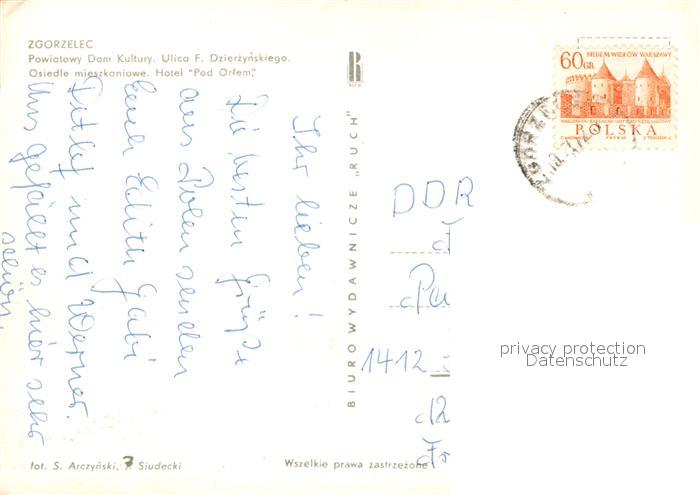 ZGORZELEC
Powiatowy Dom Kultury. Ulica F. Dzierżyńskiego.
Osiedle mieszkaniowe. Hotel "Pod Orłem,"
Ihr lieben!
Die besten Grüße
aus Polen senden
Euch Edith Gabi
Detlef und Werner.
Uns gefällt es hier sehr
schön.
BIURO WYDAWNICZE „RUCH"
RUCH
SIEDEM WIEKÓW WARSZAWY
60 GR
POLSKA
DDR
1412
privacy protection
Datenschutz
fot. S. Arczyński, J. Siudecki
Wszelkie prawa zastrzeżone